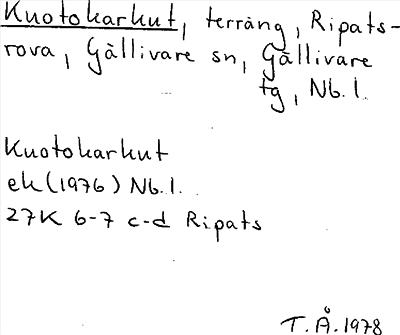 Kuotokarkut, terräng, Ripats-
rova, Gällivare sn, Gällivare
tg, Nb. l.
Kuotokarkut
ek (1976) Nb. l.
27K 6-7 c-d Ripats
T. Å. 1978